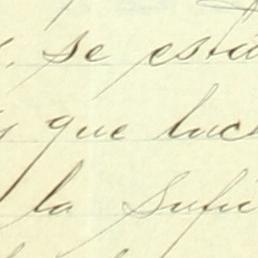 se está
que luc
la Sufi